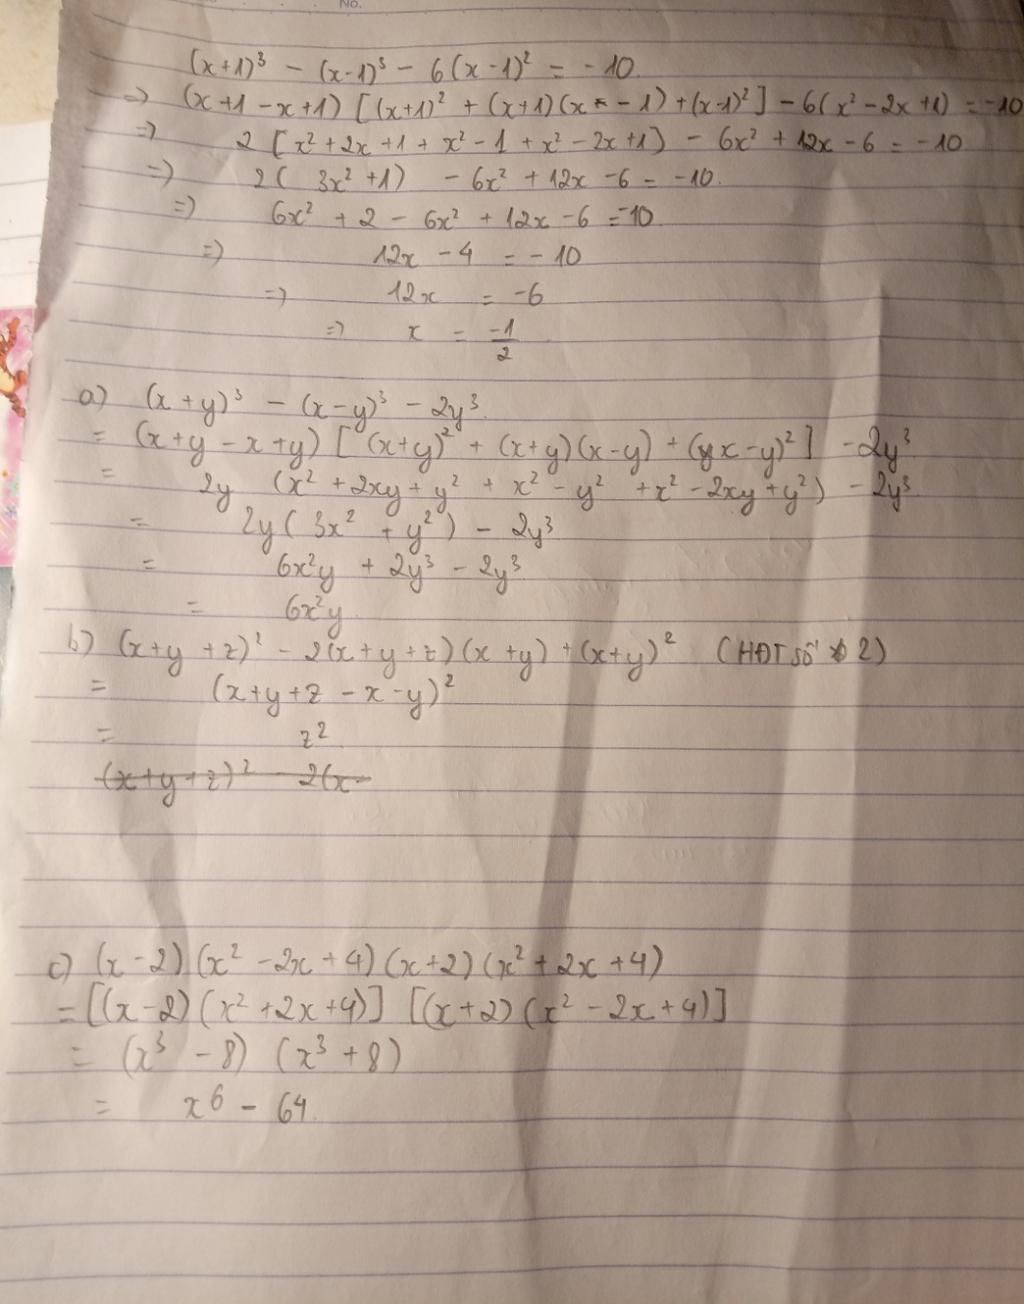 No.
(x+1)³ - (x-1)³ - 6(x-1)² = -10
=> (x+1-x+1) [(x+1)² + (x+1)(x-1) + (x-1)²] - 6(x²-2x+1) = -10
=> 2 [x²+2x+1+x²-1+x²-2x+1] - 6x²+12x-6 = -10
=> 2(3x²+1) - 6x²+12x-6 = -10.
=> 6x²+2-6x²+12x-6 = -10
=> 12x-4 = -10
=> 12x = -6
=> x = -1/2
a) (x+y)³ - (x-y)³ - 2y³
= (x+y-x+y) [(x+y)² + (x+y)(x-y) + (x-y)²] - 2y³
= 2y (x²+2xy+y²+x²-y²+x²-2xy+y²) - 2y³
= 2y(3x²+y²) - 2y³
= 6x²y + 2y³ - 2y³
= 6x²y
b) (x+y+z)² - 2(x+y+z)(x+y) + (x+y)² (HĐT số 2)
= (x+y+z-x-y)²
= z²
(x+y+z)² - 2(x-
c) (x-2)(x²-2x+4)(x+2)(x²+2x+4)
= [(x-2)(x²+2x+4)] [(x+2)(x²-2x+4)]
= (x³-8) (x³+8)
= x⁶ - 64.